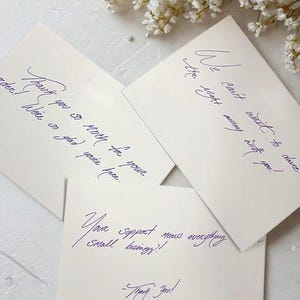 Thank you so much for your
order! We're so glad you're here
We can't wait to dance
the night away with you!
Your support means everything
small business!!
-Thank You!